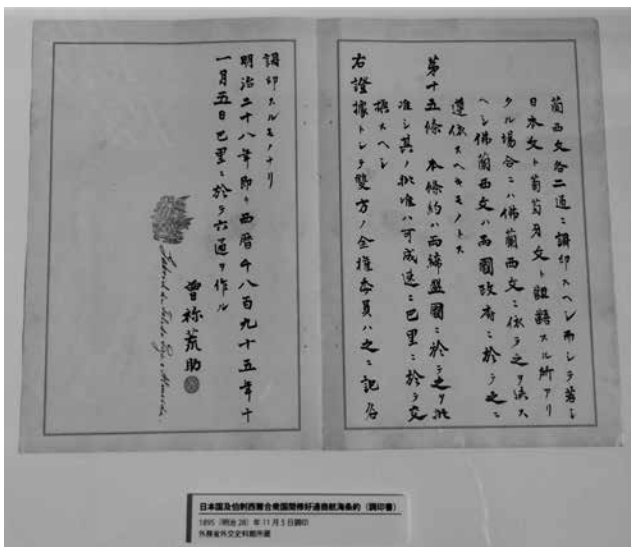 蘭西文各二通ニ調印スヘシ而シテ若シ
日本文ト葡萄牙文ト齟齬スル所アリ
タル場合ニハ佛蘭西文ニ依テ之ヲ決ス
ヘシ佛蘭西文ハ両國政府ニ於テ之ニ
遵依スヘキモノトス
第十五條 本條約ハ両締盟國ニ於テ之ヲ批
准シ其ノ批准ハ可成速ニ巴里ニ於テ交
換スヘシ
右證據トシテ雙方ノ全權委員ハ之ニ記名
調印スルモノナリ
明治二十八年即チ西暦千八百九十五年十
一月五日巴里ニ於テ六通ヲ作ル
曾祢荒助
Gabriel de Toledo Piza e Almeida.
日本国及伯剌西爾合衆国間修好通商航海条約（調印書）
1895（明治28）年11月5日調印
外務省外交史料館所蔵